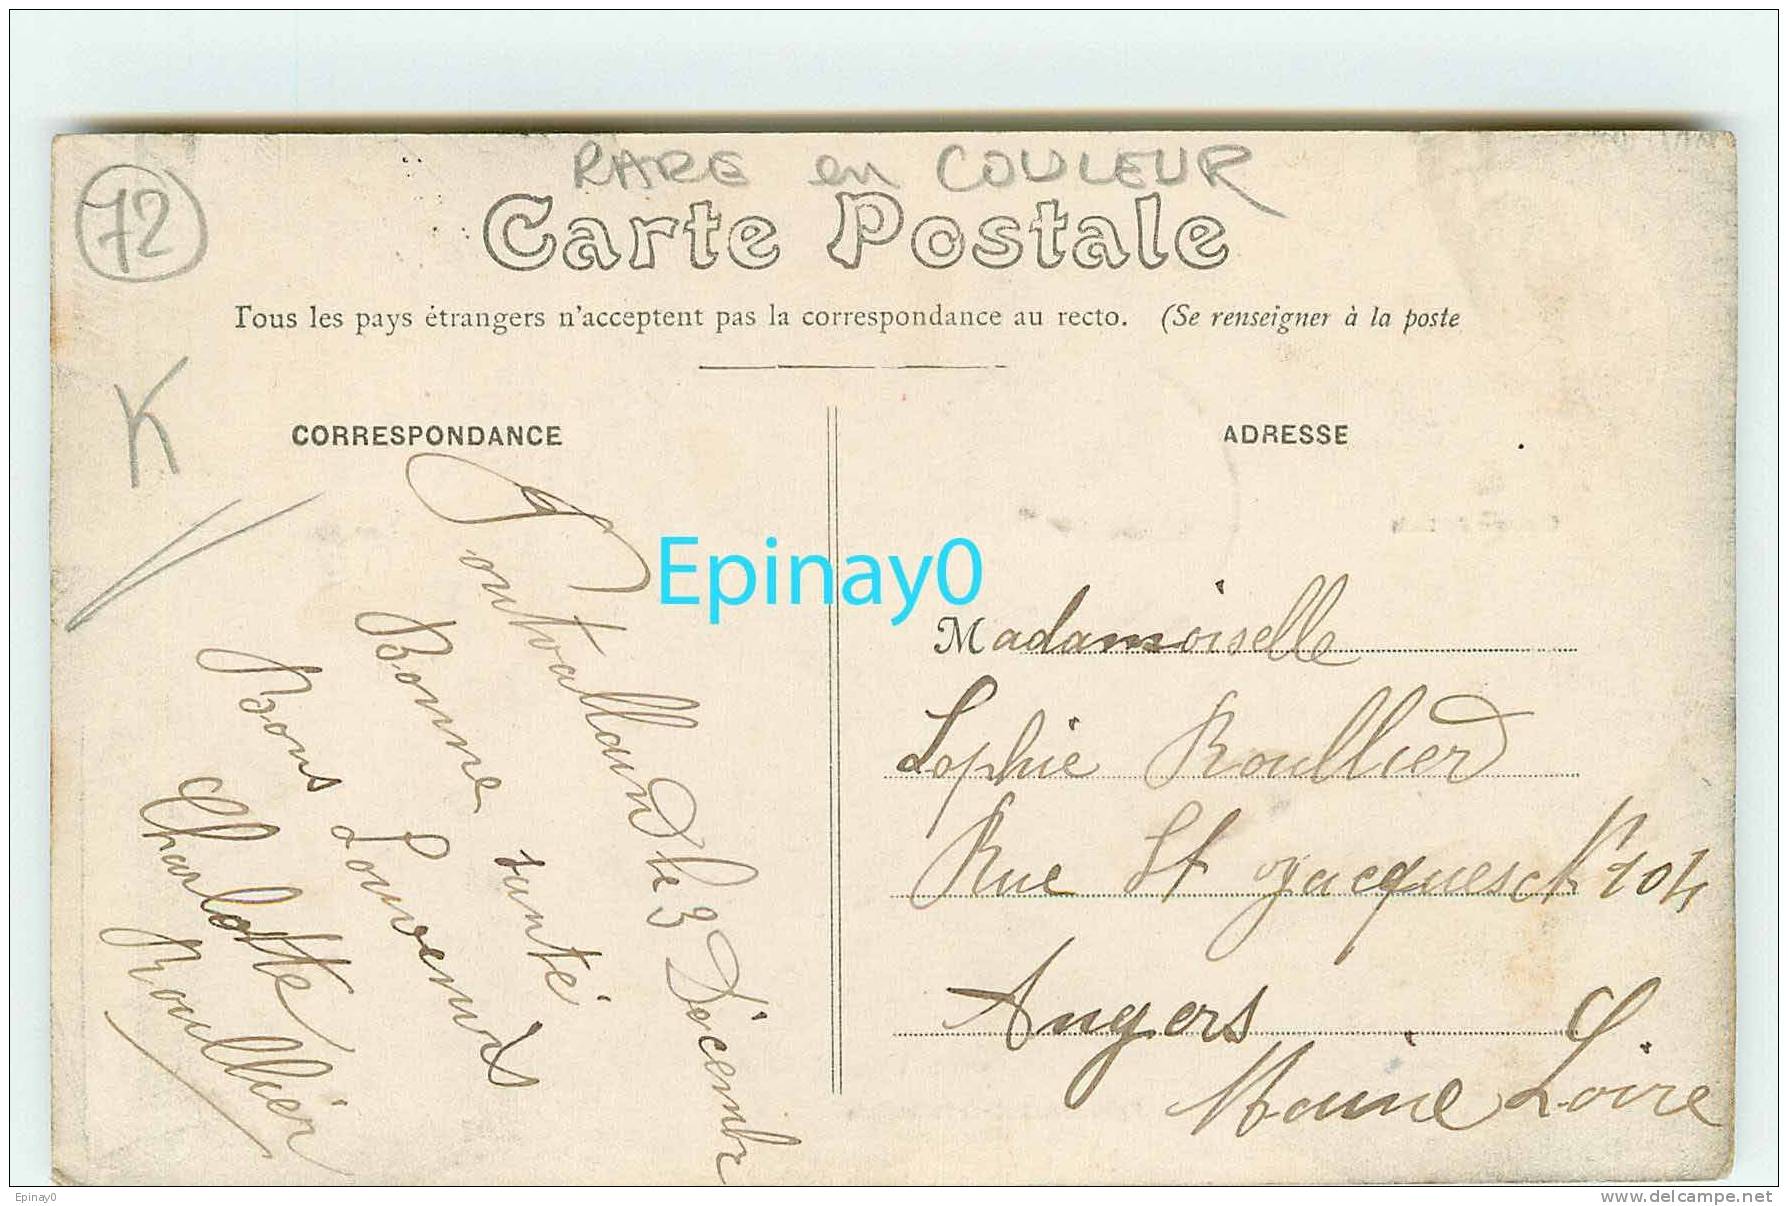 72
RARE en COULEUR
Carte Postale
Tous les pays étrangers n'acceptent pas la correspondance au recto. (Se renseigner à la poste
K
CORRESPONDANCE
ADRESSE
Pontvalland le 3 Décembr
Bonne santé
Bons Souvenirs
Charlotte
Roullier
Epinay0
Madamoiselle
Sophie Roullier
Rue St Jacques 104
Angers
Maine Loire
Epinay0
www.delcampe.net